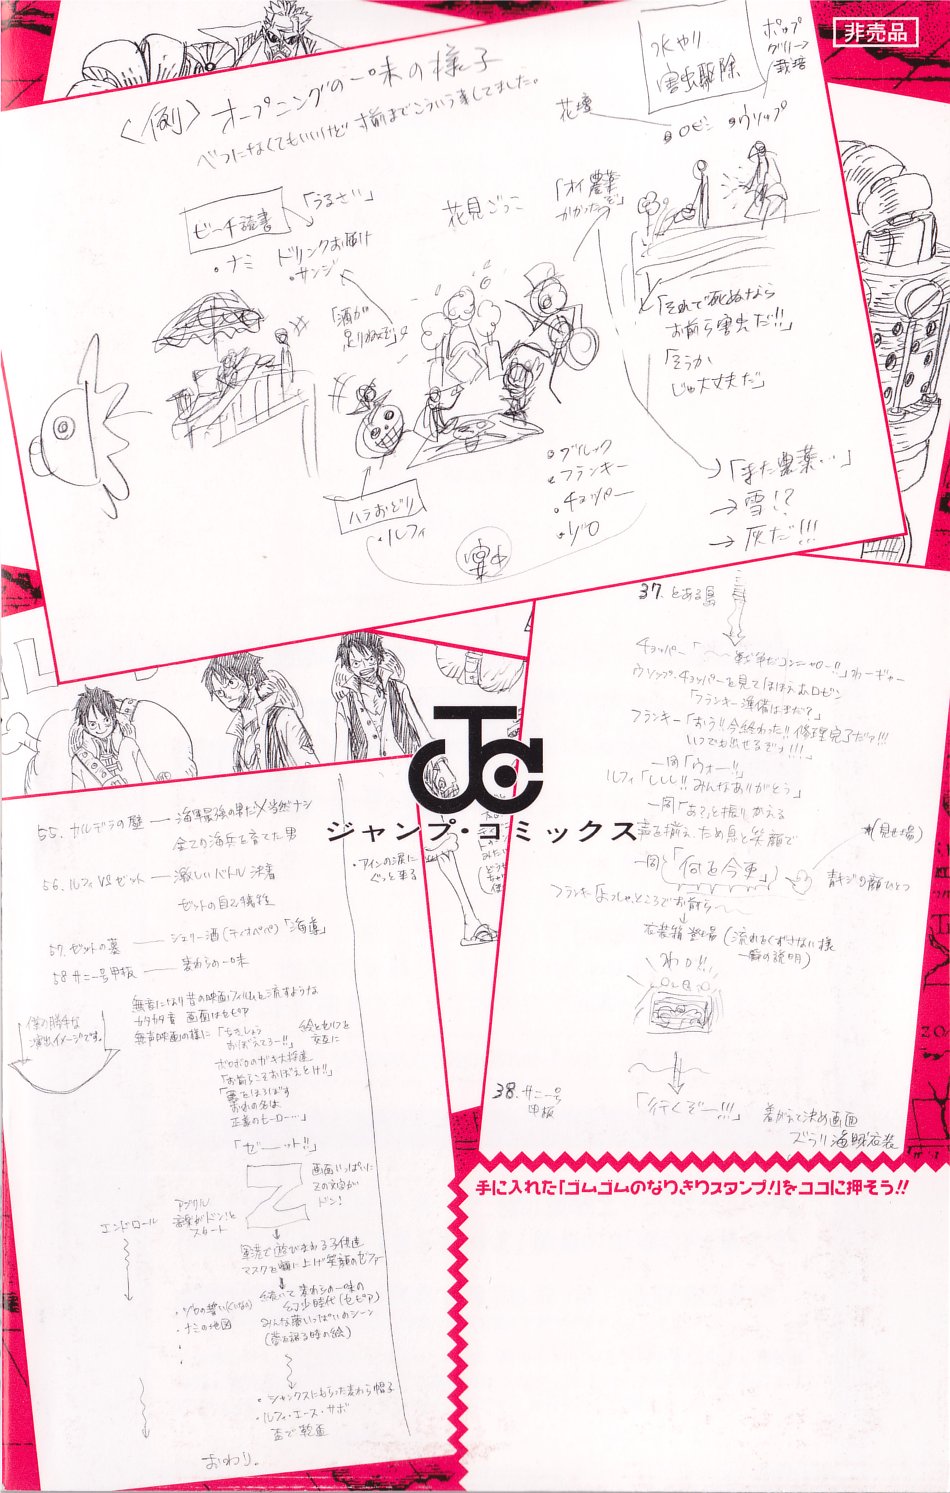 非売品
〈例〉オープニングの一味の様子
べつになくてもいいけど寸前までこういう事してました。
水やり
害虫駆除
ポップ
グリーン
栽培
花壇
ロビン
ウソップ
ビーチ読書
「うるさい」
・ナミ
ドリンクお届け
・サンジ
花見ごっこ
「オイ農薬
かかったぞ」
「酒が
足りねェぞ」
「それで死ぬなら
お前ら害虫だ!!」
「そうか
じゃ大丈夫だ」
ハラおどり
・ルフィ
・ブルック
・フランキー
・チョッパー
・ゾロ
「また農薬…」
→雪!?
→灰だ!!!
37. とある島
チョッパー「〜〜戦争だコンニャロー!!」わーギャー
ウソップ、チョッパーを見てほほえむロビン
「フランキー準備はまだ?」
フランキー「おう!!今終わった!!修理完了だァ!!!
いつでも出せるぞォ!!!」
一同「ウォー!!」
ルフィ「ししし!!みんなありがとう」
一同「あ?」と振りかえる
声を揃え、ため息と笑顔で
一同「何を今更」
*(見せ場)
青キジの顔ひとつ
フランキー「よっしゃ、ところでお前ら〜
衣装箱登場(流れをくずさない様
一瞬の説明)
38. サニー号
甲板
「行くぞー!!!」
着がえて決め画面
ズラリ海賊衣装
ジャンプ・コミックス
55. カルデラの壁 ── 海軍最強の果たし合い 当然ナシ
全ての海兵を育てた男
56. ルフィVSゼット ── 激しいバトル 決着
ゼットの自己犠牲
57. ゼットの墓 ── シェリー酒(ティオペペ)「海導」
58 サニー号甲板 ── 麦わらの一味
・アインの涙に
ぐっと来る
僕の勝手な
演出イメージです。
無音になり昔の映画フィルムを流すような
カタカタ音 画面はセピア
無声映画の様に
「ちきしょう
おぼえてろー!!」
絵とセリフを
交互に
ボロボロのガキ大将達
「お前らこそおぼえとけ!!」
「悪をほろぼす
おれの名は
正義のヒーロー…」
「ゼーーット!!」
Z
画面いっぱいに
Zの文字が
ドン!
エンドロール
アヴリル
音楽がドン!と
スタート
軍港で遊びまわる子供達
マスクを額に上げ笑顔のゼファー
続いて麦わらの一味の
幼少時代(セピア)
みんな夢いっぱいのシーン
(夢を語る時の絵)
・ゾロの誓い(くいな)
・ナミの地図
・シャンクスにもらった麦わら帽子
・ルフィ・エース・サボ
盃で乾盃
おわり。
手に入れた「ゴムゴムのなりきりスタンプ!」をココに押そう!!